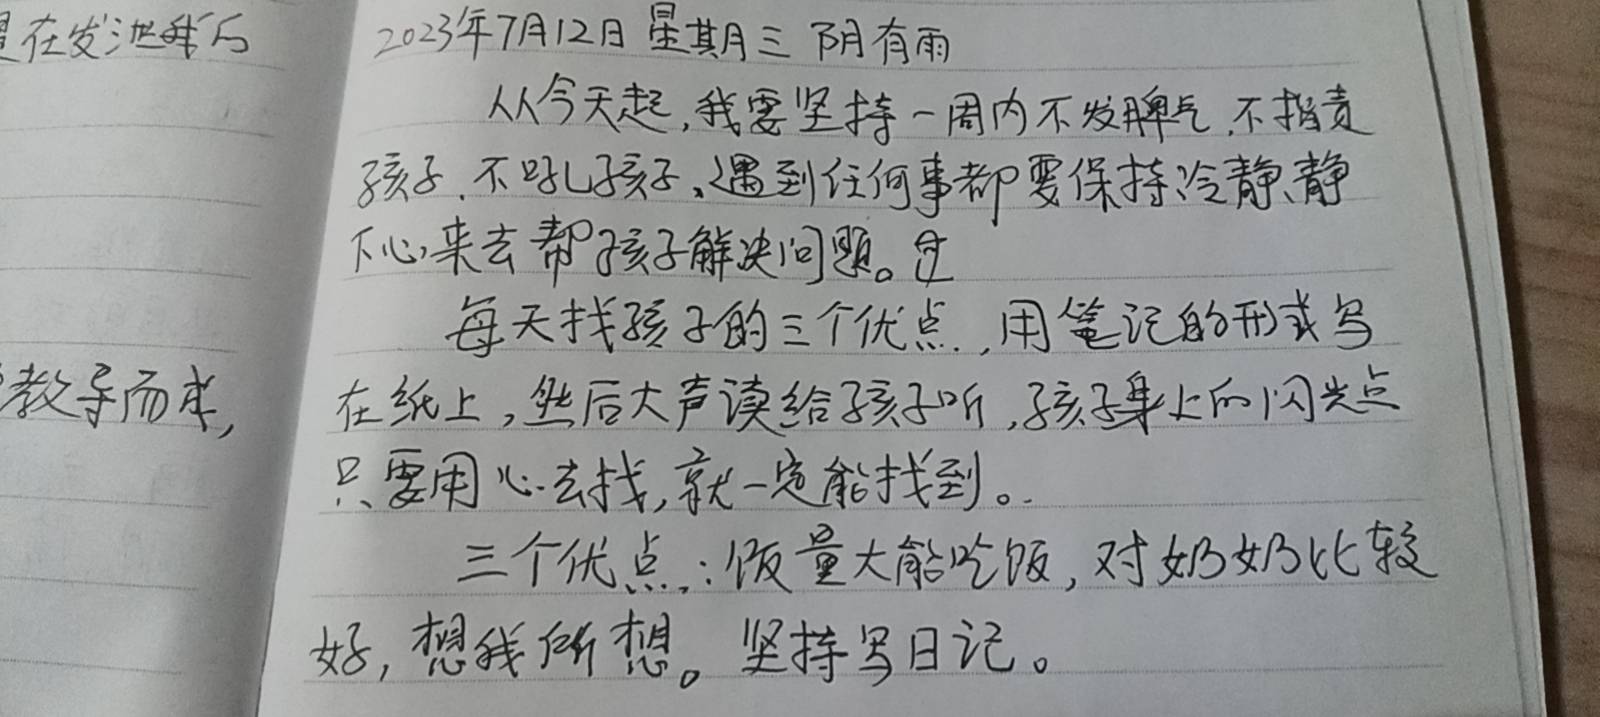 是在发泄我的
教导而求,
2023年7月12日 星期三 阴有雨
从今天起,我要坚持一周内不发脾气、不指责
孩子、不吼孩子、遇到任何事都要保持冷静、静
下心来去帮孩子解决问题。
每天找孩子的三个优点,用笔记的形式写
在纸上,然后大声读给孩子听,孩子身上的闪光点
只要用心去找,就一定能找到。
三个优点:饭量大能吃饭,对奶奶比较
好,想我所想。坚持写日记。